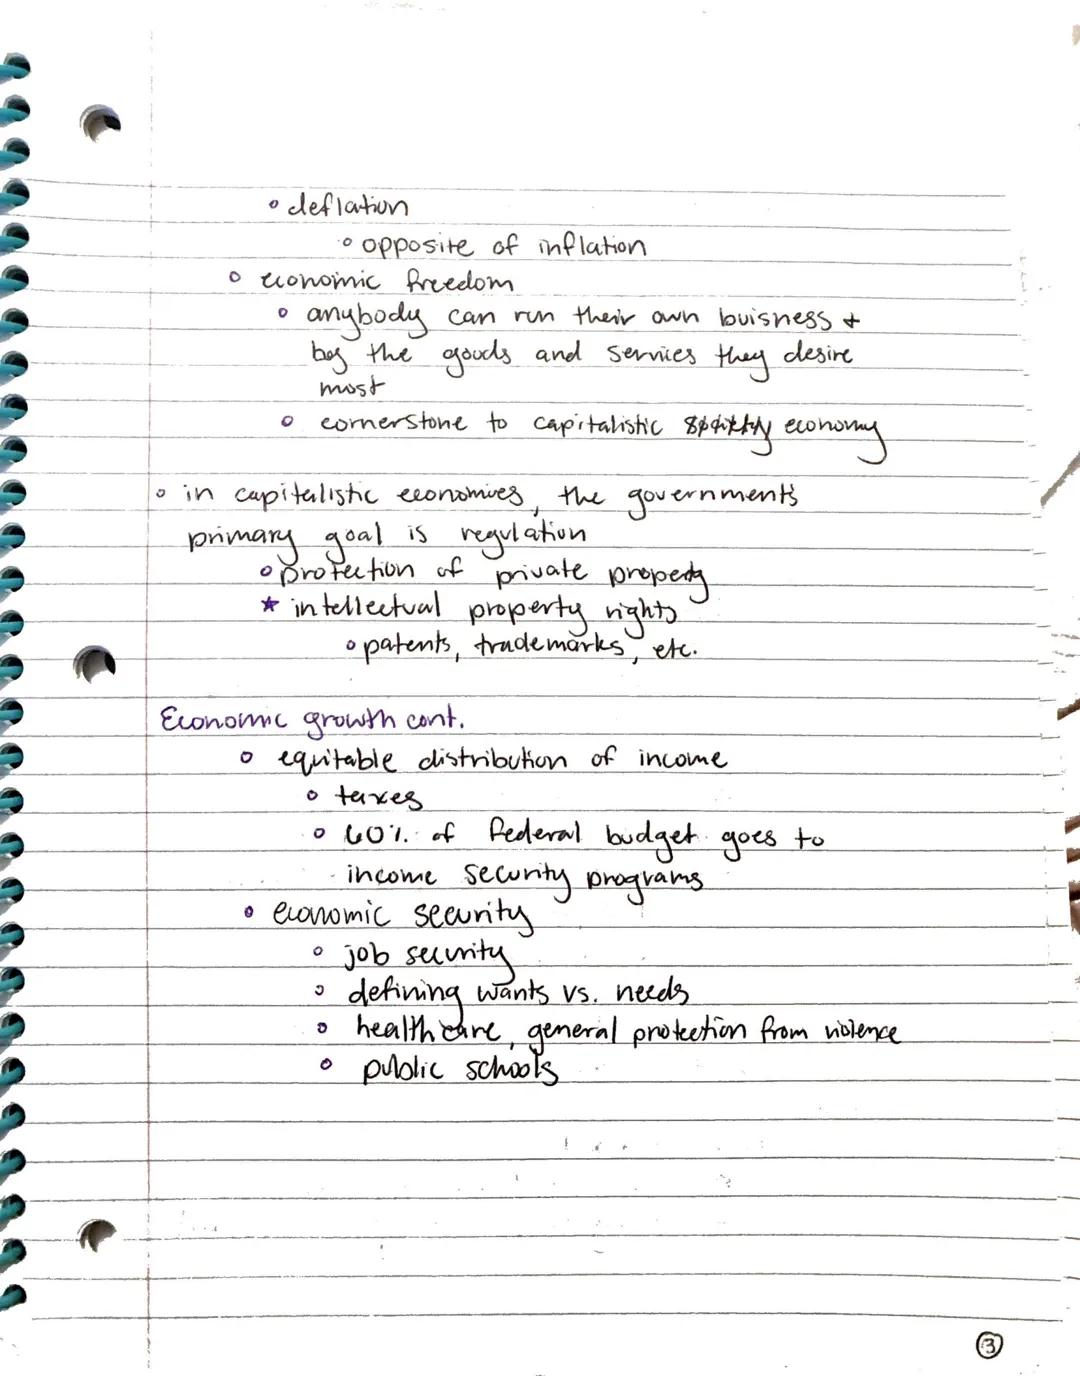 ◦ deflation
◦ opposite of inflation
◦ economic freedom
◦ anybody can run their own buisness +
the goods and services they desire
most
◦ cornerstone to capitalistic economy
◦ in capitalistic economies, the government's
primary goal is regulation
◦ protection of private property
★ intellectual property rights
◦ patents, trademarks, etc.
Economic growth cont.
◦ equitable distribution of income
◦ taxes
◦ 60% of federal budget goes to
income security programs
◦ economic security
◦ job security
◦ defining wants vs. needs
◦ healthcare, general protection from violence
◦ public schools
3